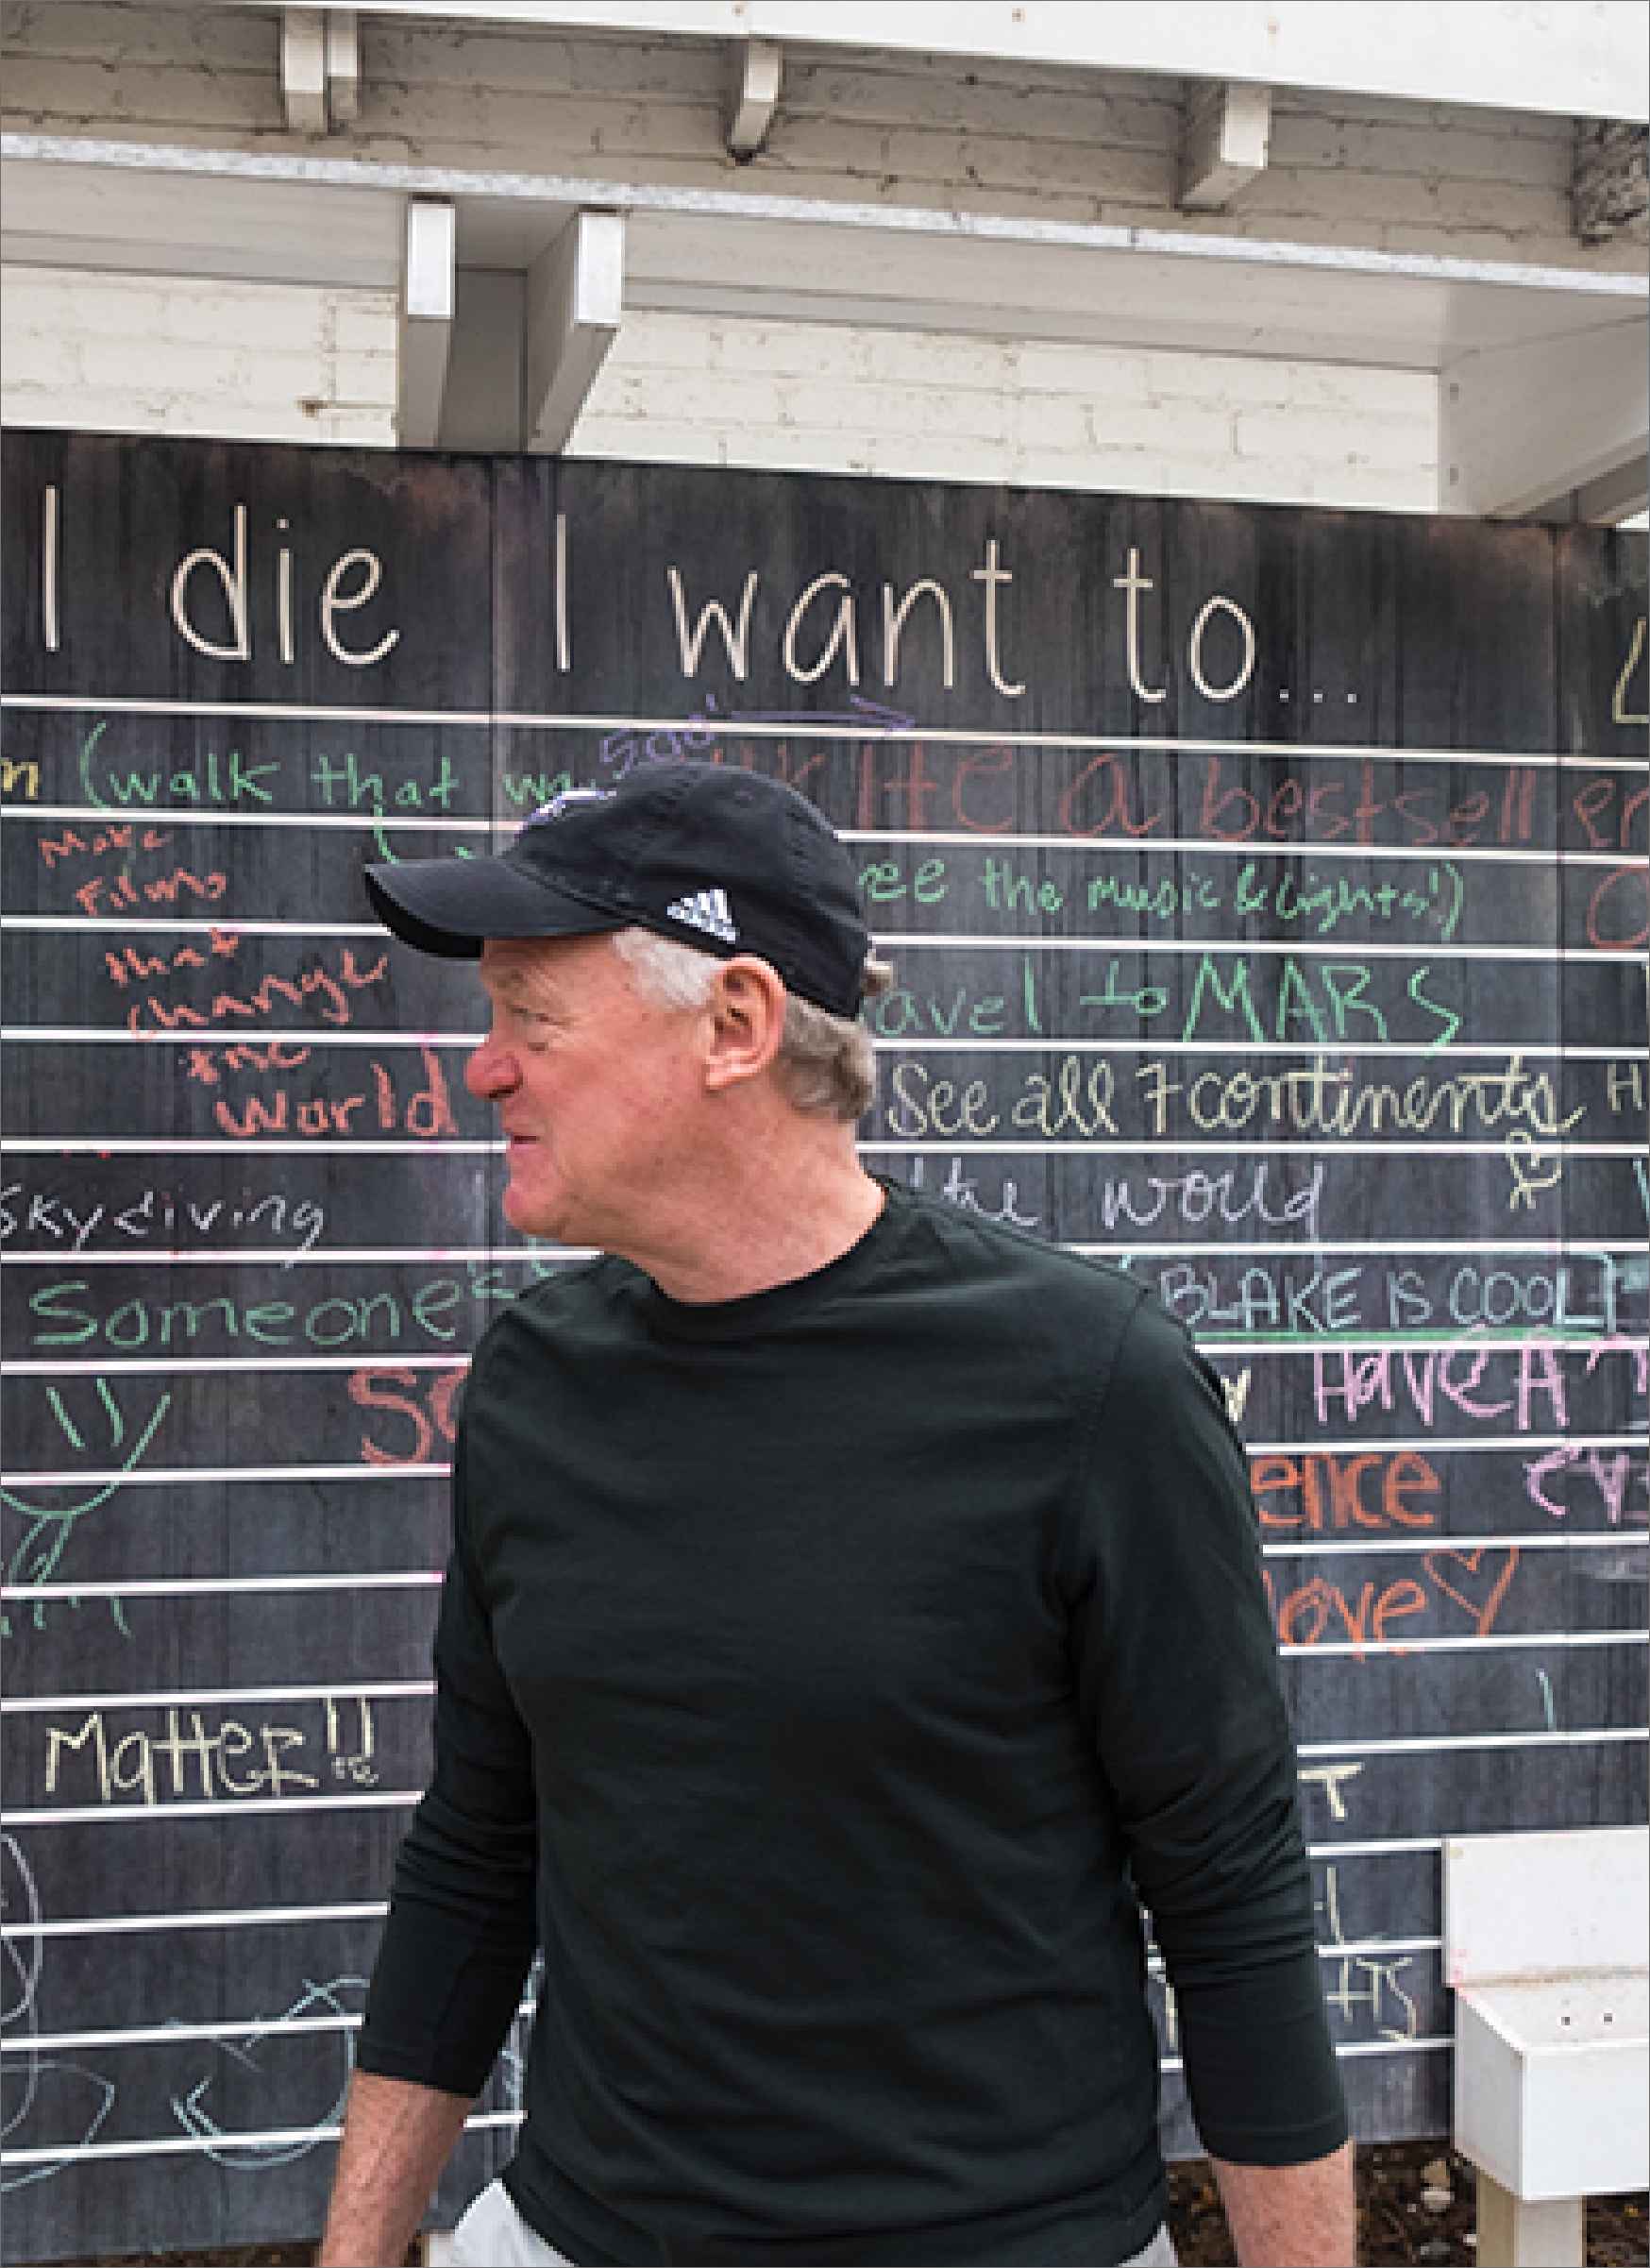 I die I want to...
500'
n (walk that wa
ite a bestseller
Make
Films
ee the music & lights!)
that
change
avel to MARS
the
World
See all 7 continents H
skydiving
the would
Someone's
BLAKE IS COOL!
So
Have A
ence
love
Matter!!